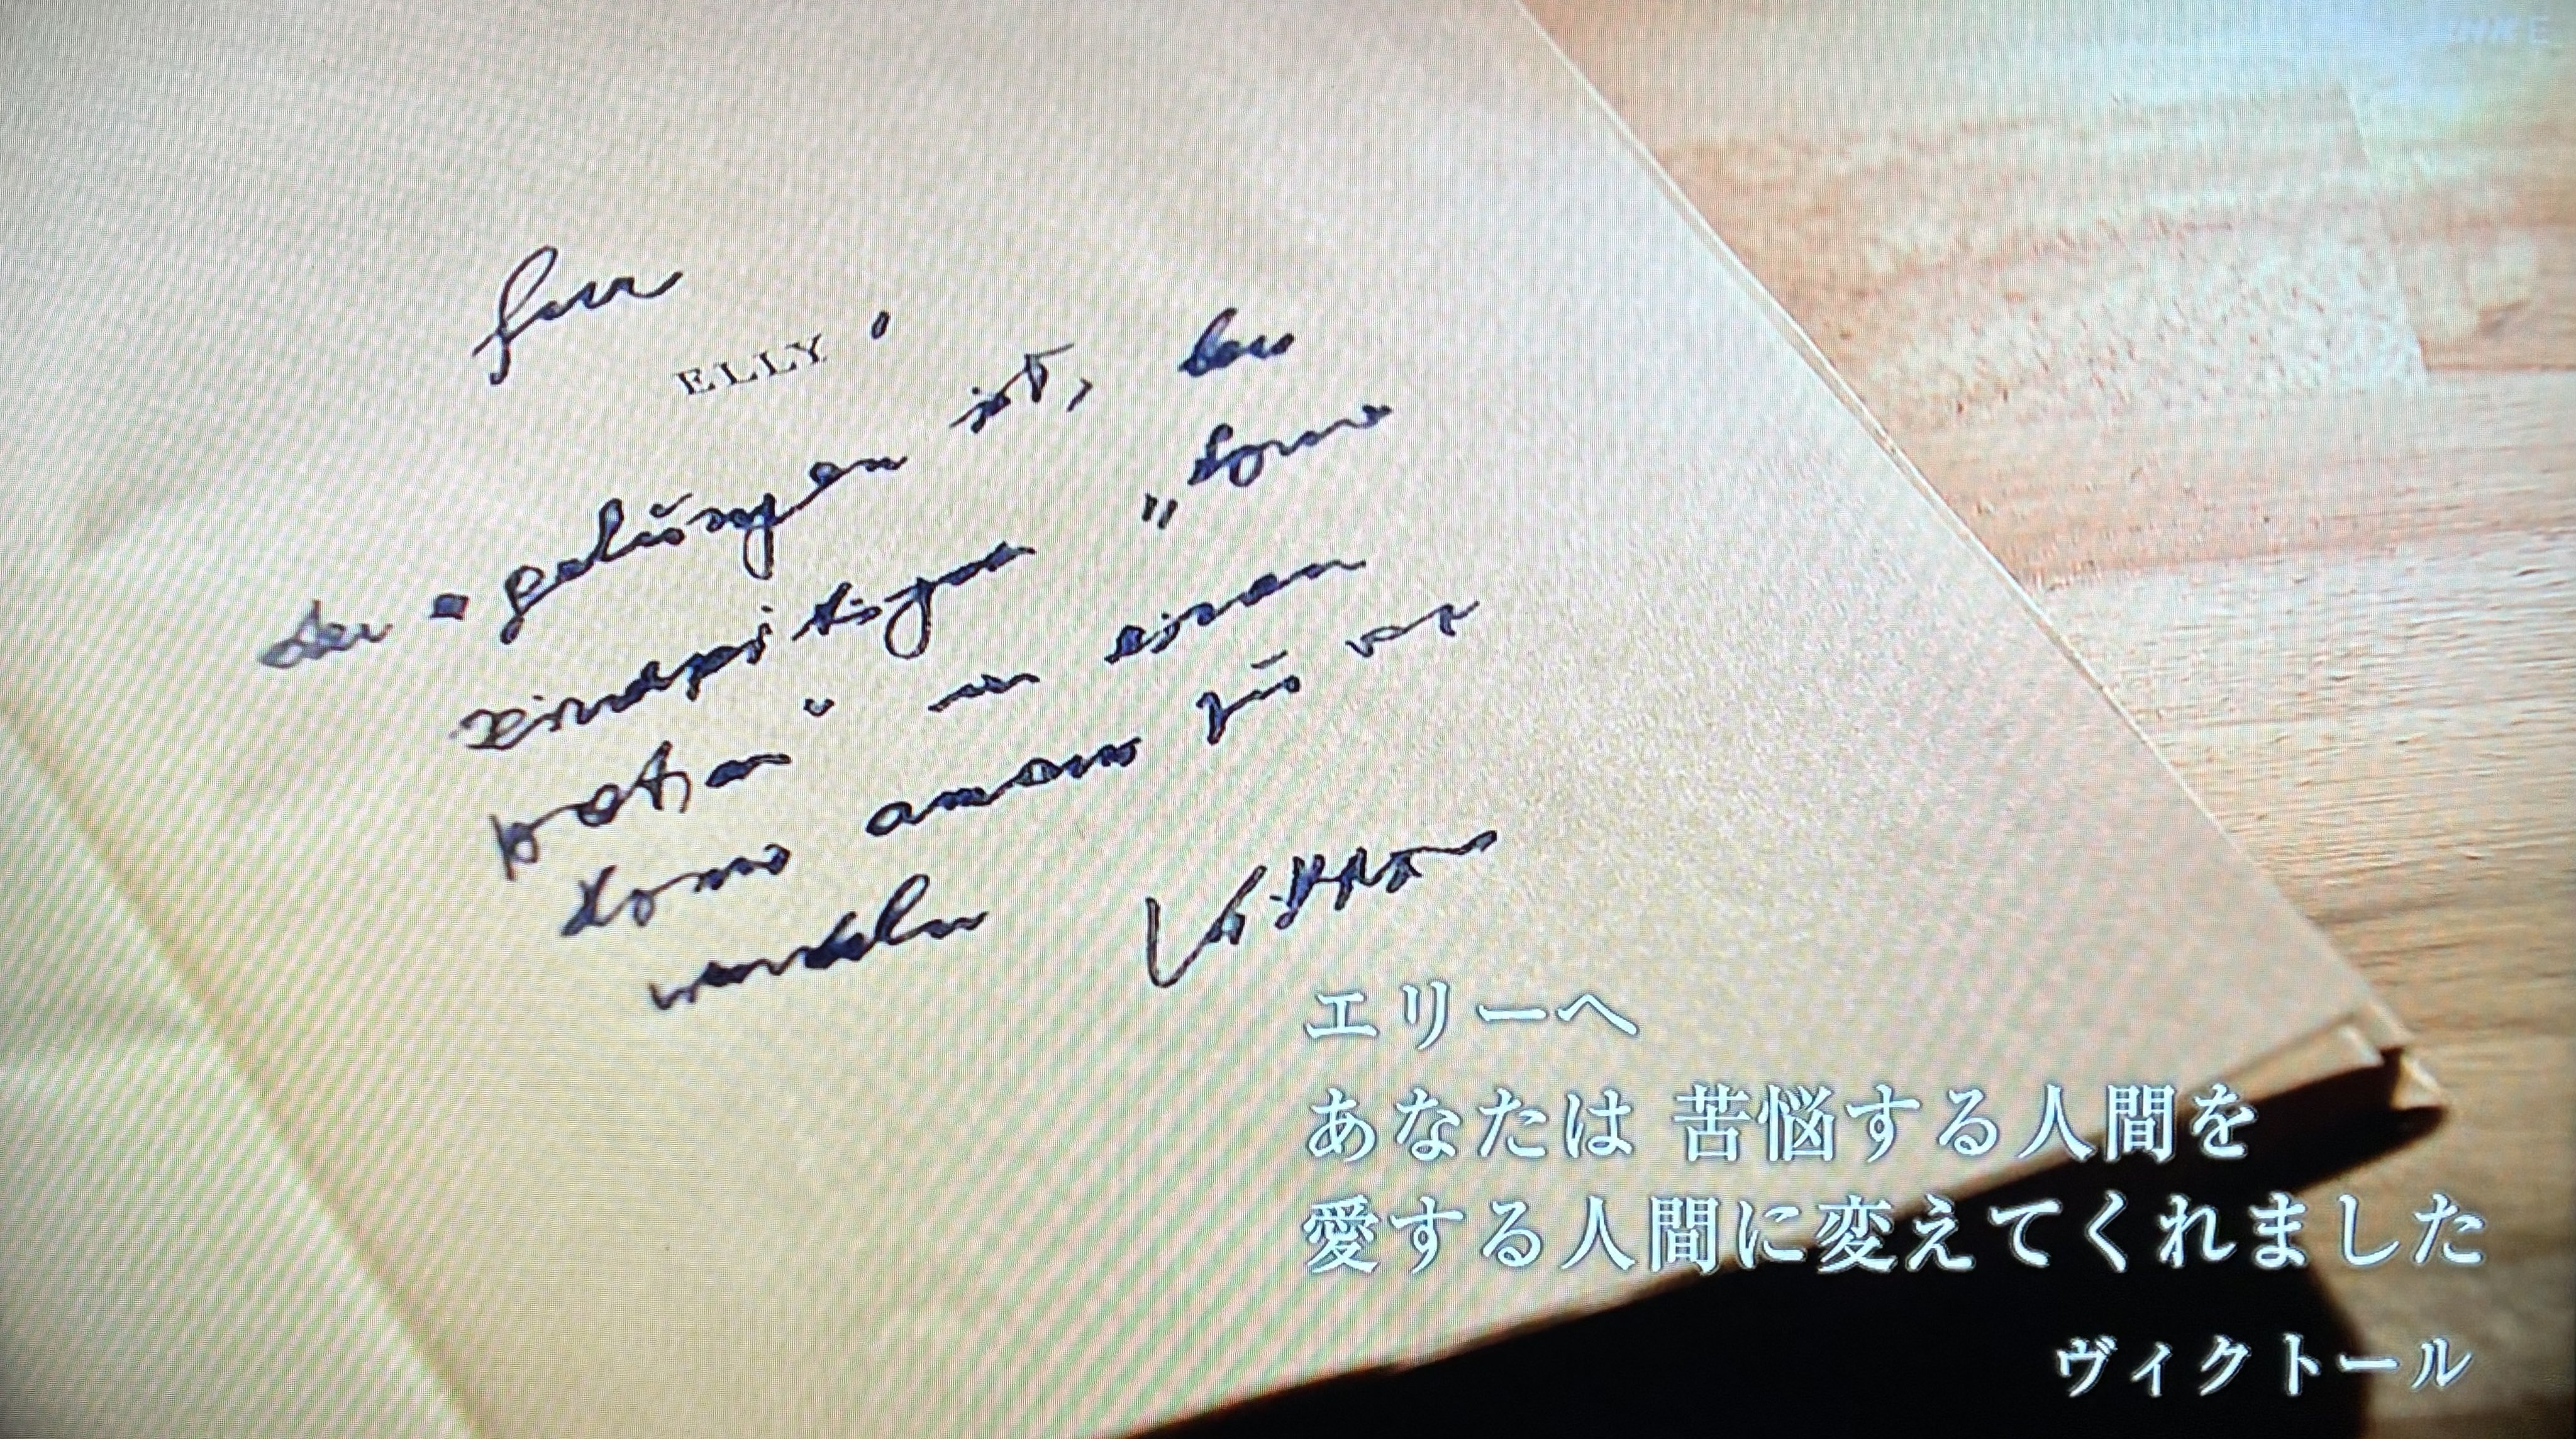 für
ELLY,
der es gelungen ist, den
einstigen „homo
patiens“ in einen
homo amans zu ver-
wandeln
Viktor
エリーへ
あなたは 苦悩する人間を
愛する人間に変えてくれました
ヴィクトール